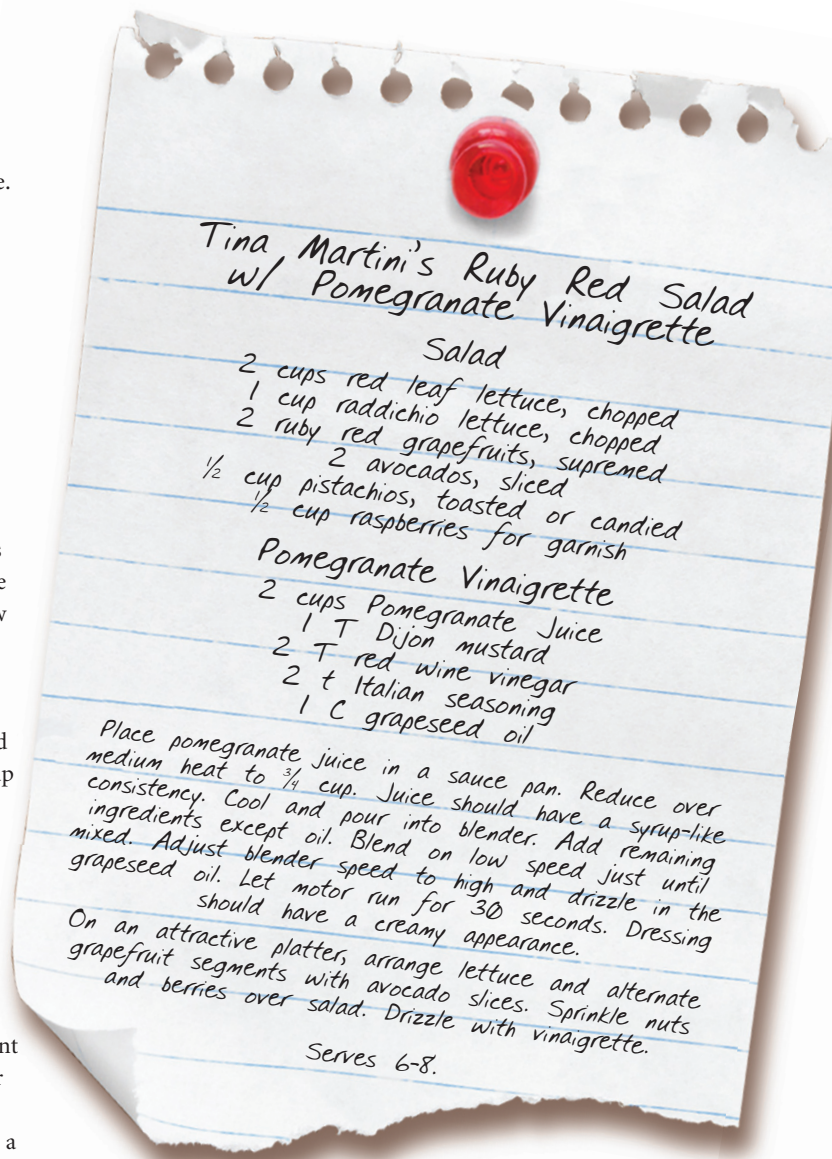 Tina Martini's Ruby Red Salad
w/ Pomegranate Vinaigrette
Salad
2 cups red leaf lettuce, chopped
1 cup raddichio lettuce, chopped
2 ruby red grapefruits, supremed
2 avocados, sliced
½ cup pistachios, toasted or candied
½ cup raspberries for garnish
Pomegranate Vinaigrette
2 cups Pomegranate Juice
1 T Dijon mustard
2 T red wine vinegar
2 t Italian seasoning
1 C grapeseed oil
Place pomegranate juice in a sauce pan. Reduce over
medium heat to ¾ cup. Juice should have a syrup-like
consistency. Cool and pour into blender. Add remaining
ingredients except oil. Blend on low speed just until
mixed. Adjust blender speed to high and drizzle in the
grapeseed oil. Let motor run for 30 seconds. Dressing
should have a creamy appearance.
On an attractive platter, arrange lettuce and alternate
grapefruit segments with avocado slices. Sprinkle nuts
and berries over salad. Drizzle with vinaigrette.
Serves 6-8.